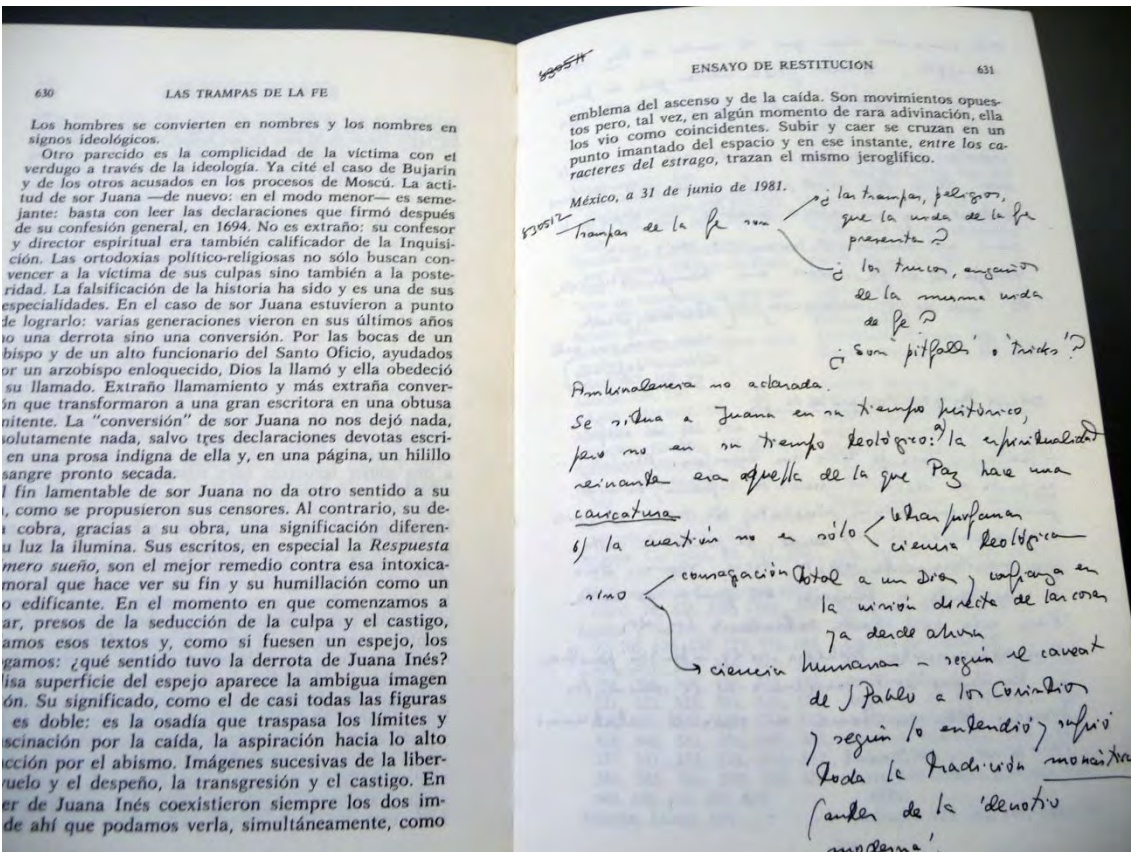 630 LAS TRAMPAS DE LA FE
Los hombres se convierten en nombres y los nombres en
signos ideológicos.
Otro parecido es la complicidad de la víctima con el
verdugo a través de la ideología. Ya cité el caso de Bujarin
y de los otros acusados en los procesos de Moscú. La acti-
tud de sor Juana —de nuevo: en el modo menor— es seme-
jante: basta con leer las declaraciones que firmó después
de su confesión general, en 1694. No es extraño: su confesor
y director espiritual era también calificador de la Inquisi-
ción. Las ortodoxias político-religiosas no sólo buscan con-
vencer a la víctima de sus culpas sino también a la poste-
ridad. La falsificación de la historia ha sido y es una de sus
especialidades. En el caso de sor Juana estuvieron a punto
de lograrlo: varias generaciones vieron en sus últimos años
no una derrota sino una conversión. Por las bocas de un
bispo y de un alto funcionario del Santo Oficio, ayudados
or un arzobispo enloquecido, Dios la llamó y ella obedeció
su llamado. Extraño llamamiento y más extraña conver-
ón que transformaron a una gran escritora en una obtusa
nitente. La "conversión" de sor Juana no nos dejó nada,
solutamente nada, salvo tres declaraciones devotas escri-
en una prosa indigna de ella y, en una página, un hilillo
sangre pronto secada.
l fin lamentable de sor Juana no da otro sentido a su
, como se propusieron sus censores. Al contrario, su de-
cobra, gracias a su obra, una significación diferen-
u luz la ilumina. Sus escritos, en especial la Respuesta
mero sueño, son el mejor remedio contra esa intoxica-
moral que hace ver su fin y su humillación como un
o edificante. En el momento en que comenzamos a
ar, presos de la seducción de la culpa y el castigo,
amos esos textos y, como si fuesen un espejo, los
gamos: ¿qué sentido tuvo la derrota de Juana Inés?
isa superficie del espejo aparece la ambigua imagen
ón. Su significado, como el de casi todas las figuras
es doble: es la osadía que traspasa los límites y
scinación por la caída, la aspiración hacia lo alto
cción por el abismo. Imágenes sucesivas de la liber-
vuelo y el despeño, la transgresión y el castigo. En
er de Juana Inés coexistieron siempre los dos im-
de ahí que podamos verla, simultáneamente, como
ENSAYO DE RESTITUCIÓN 631
emblema del ascenso y de la caída. Son movimientos opues-
tos pero, tal vez, en algún momento de rara adivinación, ella
los vio como coincidentes. Subir y caer se cruzan en un
punto imantado del espacio y en ese instante, entre los ca-
racteres del estrago, trazan el mismo jeroglífico.
México, a 31 de junio de 1981.
830512
Trampas de la fe son
¿ las trampas, peligros,
que la vida de la fe
presentan ?
¿ los trucos, engaños
de la misma vida
de fe ?
¿ Son 'pitfalls' o 'tricks' ?
Ambivalencia no aclarada.
Se situa a Juana en su tiempo histórico,
pero no en su tiempo teológico: a) la espiritualidad
reinante era aquella de la que Paz hace una
caricatura
b) la cuestión no es sólo
letras profanas
ciencia teológica
sino
consagración total a un Dios y confianza en
la visión directa de las cosas
ya desde ahora
ciencia humana – según el caveat
de S Pablo a los Corintios
y según lo entendió y sufrió
toda la tradición monástica
(antes de la 'devotio
moderna'.